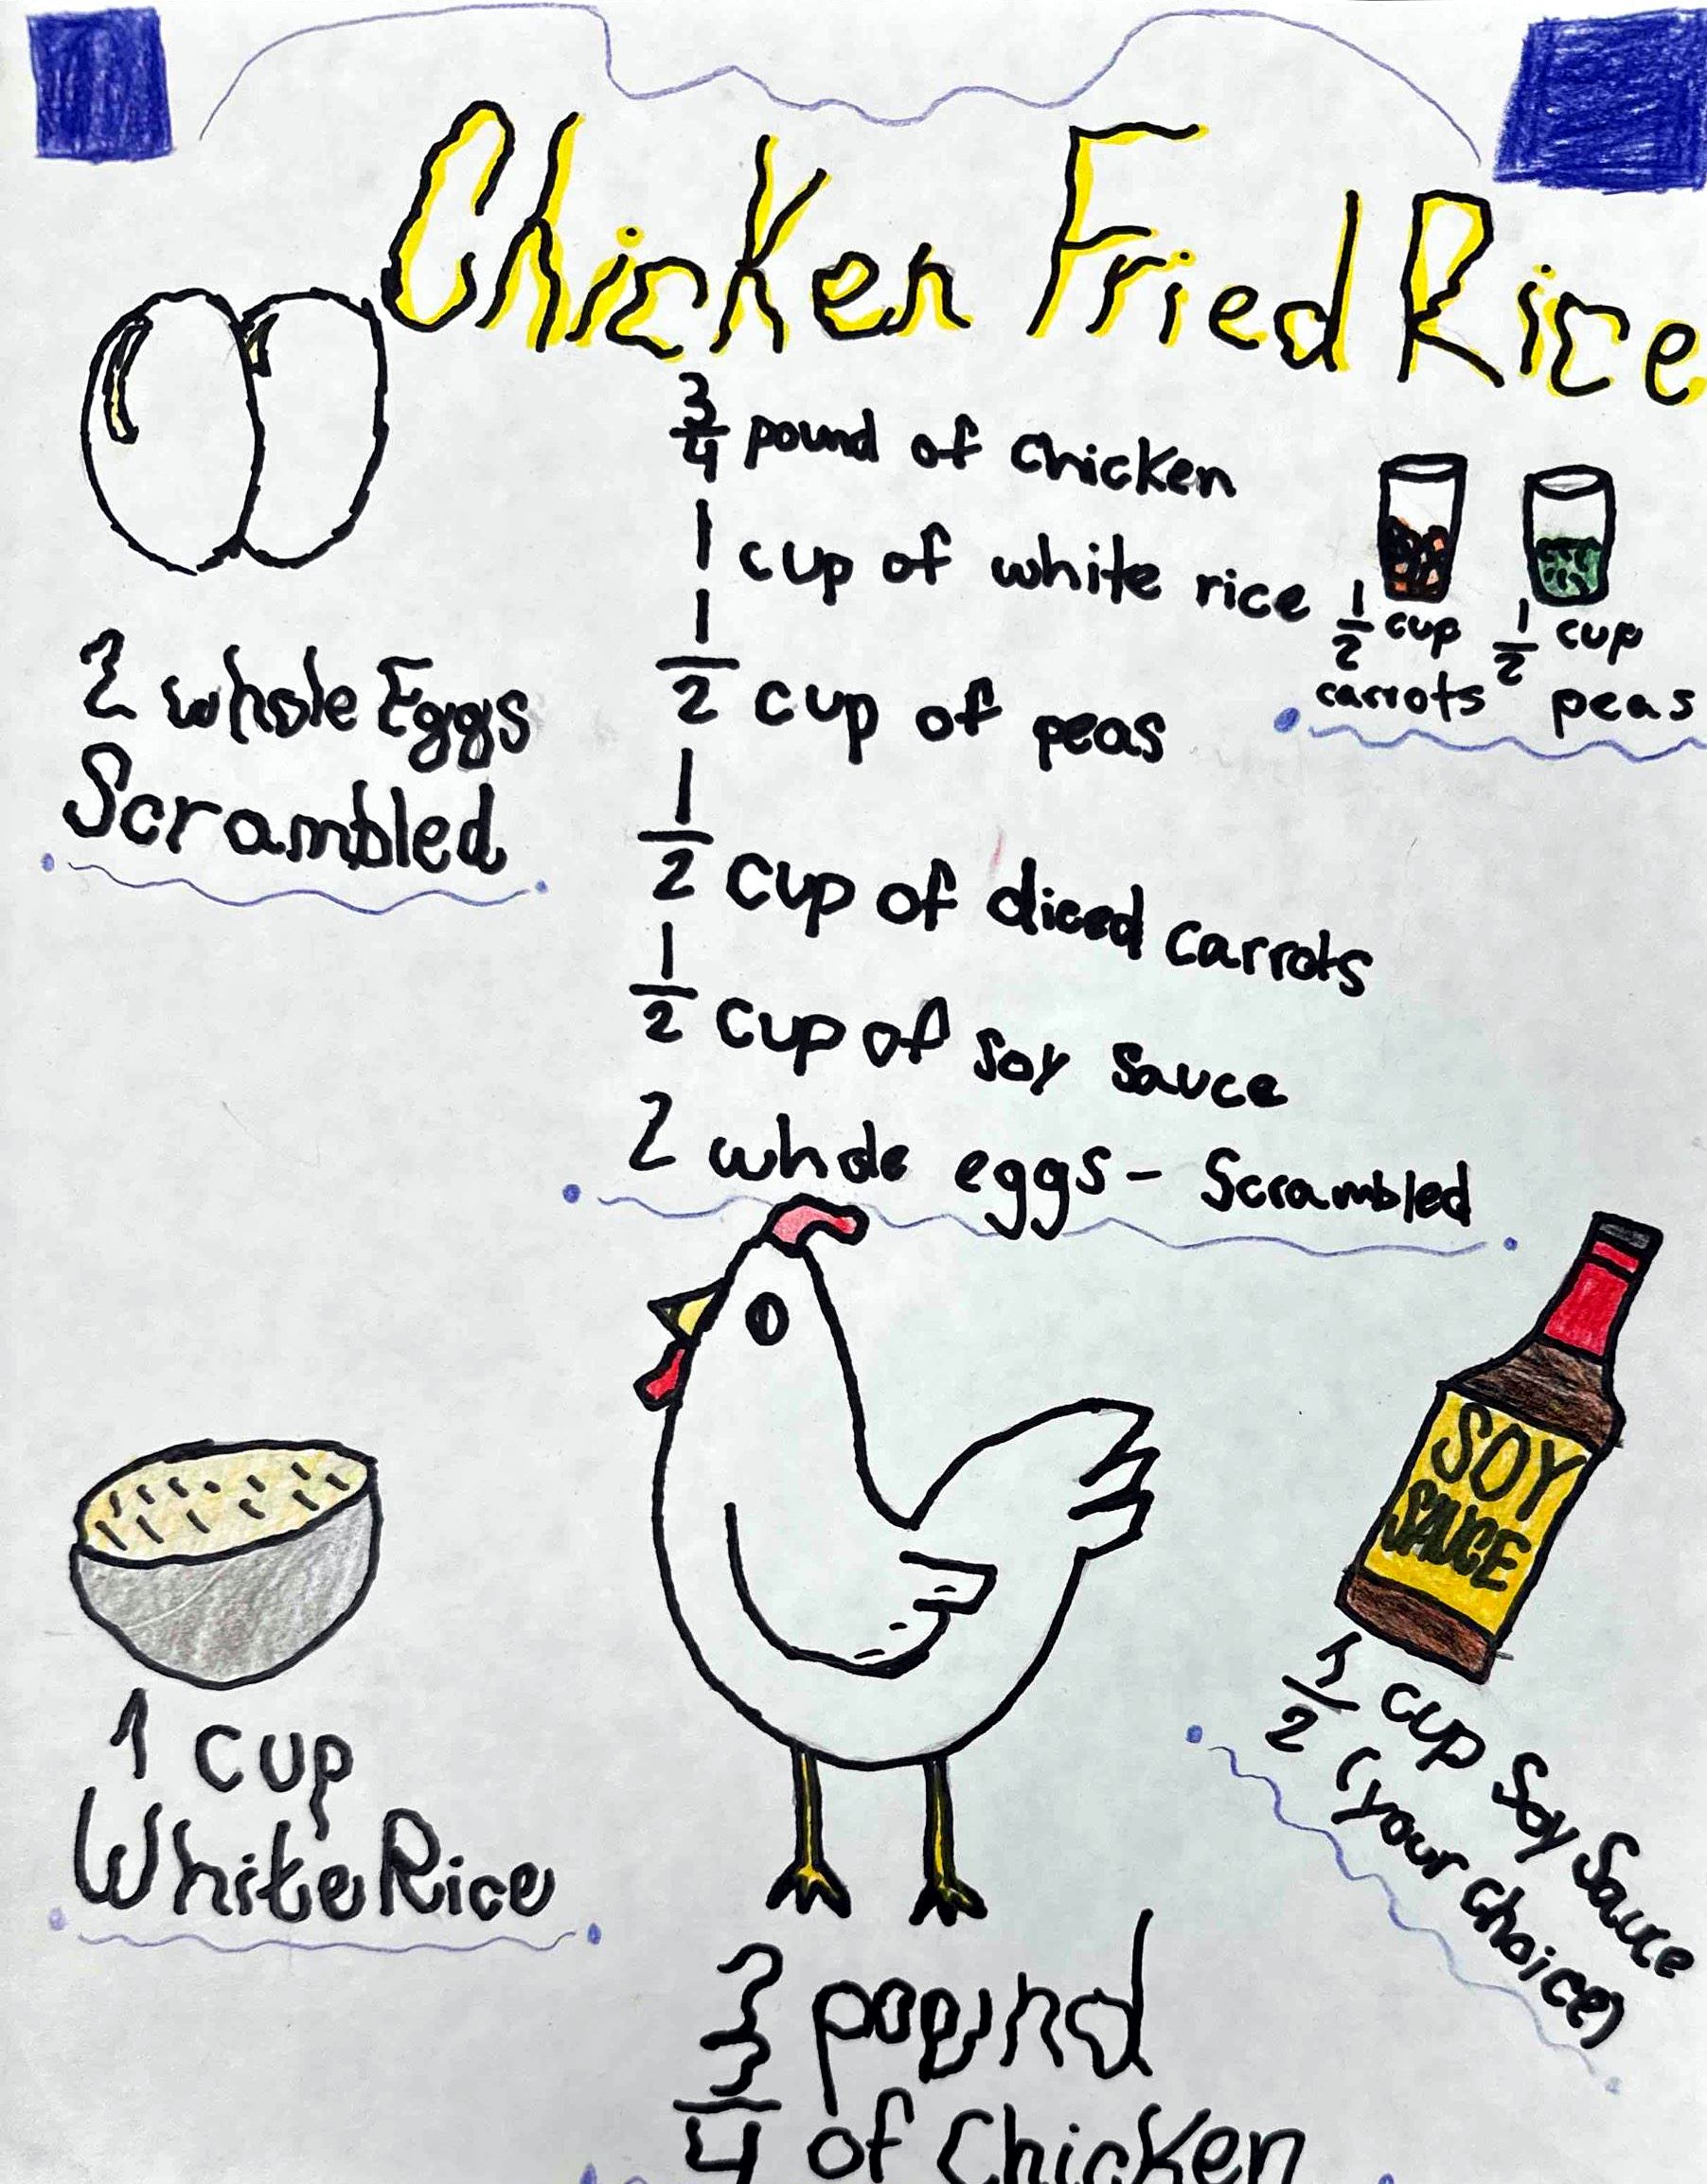 Chicken Fried Rice
3/4 pound of chicken
1 cup of white rice
1/2 cup of peas
1/2 cup of diced carrots
1/2 cup of soy sauce
2 whole eggs - Scrambled
1/2 cup
carrots
1/2 cup
peas
2 whole Eggs
Scrambled
SOY
SAUCE
1/2 cup Soy Sauce
(your choice)
1 cup
White Rice
3/4 pound
of Chicken